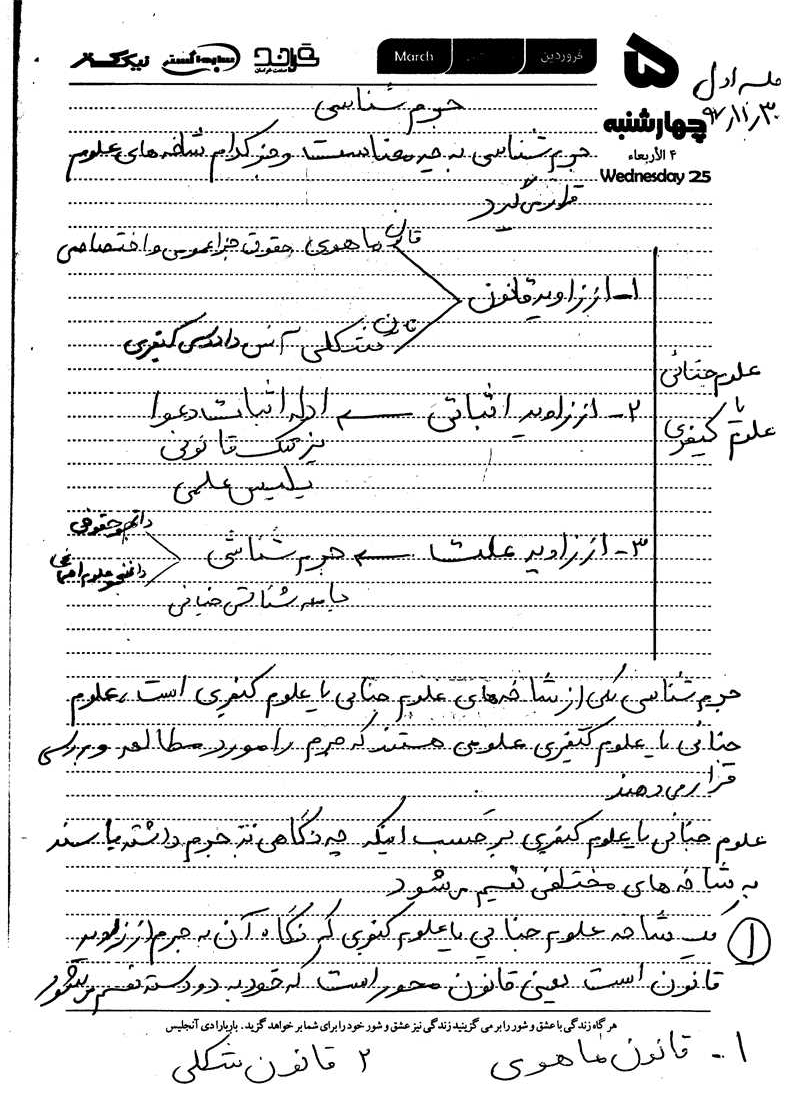 فروردین
March
نیک گستر
سایه گستر
جلسه اول
۹۷/۱۱/۳۰
۵
چهارشنبه
۴ الأربعاء
Wednesday 25
جرم شناسی
جرم شناسی به چه معناست و جز کدام شاخه های علوم
قرار می گیرد
علوم جنائی
یا
علوم کیفری
۱- از زاویه قانون
قانون ماهوی حقوق جزا عمومی و اختصاصی
قانون شکلی آئین دادرسی کیفری
۲- از زاویه اثباتی ← ادله اثبات دعوا
پزشک قانونی
پلیس علمی
۳- از زاویه علت ← جرم شناسی
دانشجو حقوق
دانشجو علوم اجتماعی
جامعه شناسی جنایی
جرم شناسی یکی از شاخه های علوم جنائی یا علوم کیفری است، علوم
جنائی یا علوم کیفری علومی هستند که جرم را مورد مطالعه و بررسی
قرار می دهند
علوم جنائی یا علوم کیفری بر حسب اینکه چه نگاهی به جرم داشته باشند
به شاخه های مختلفی تقسیم می شود
۱ یک شاخه علوم جنایی یا علوم کیفری که نگاه آن به جرم از زاویه
قانون است یعنی قانون محور است که خود به دو دسته تقسیم می شود
هر گاه زندگی با عشق و شور را بر می گزینید زندگی نیز عشق و شور خود را برای شما بر خواهد گزید. باربارا دی آنجلیس
۱- قانون ماهوی ۲ قانون شکلی